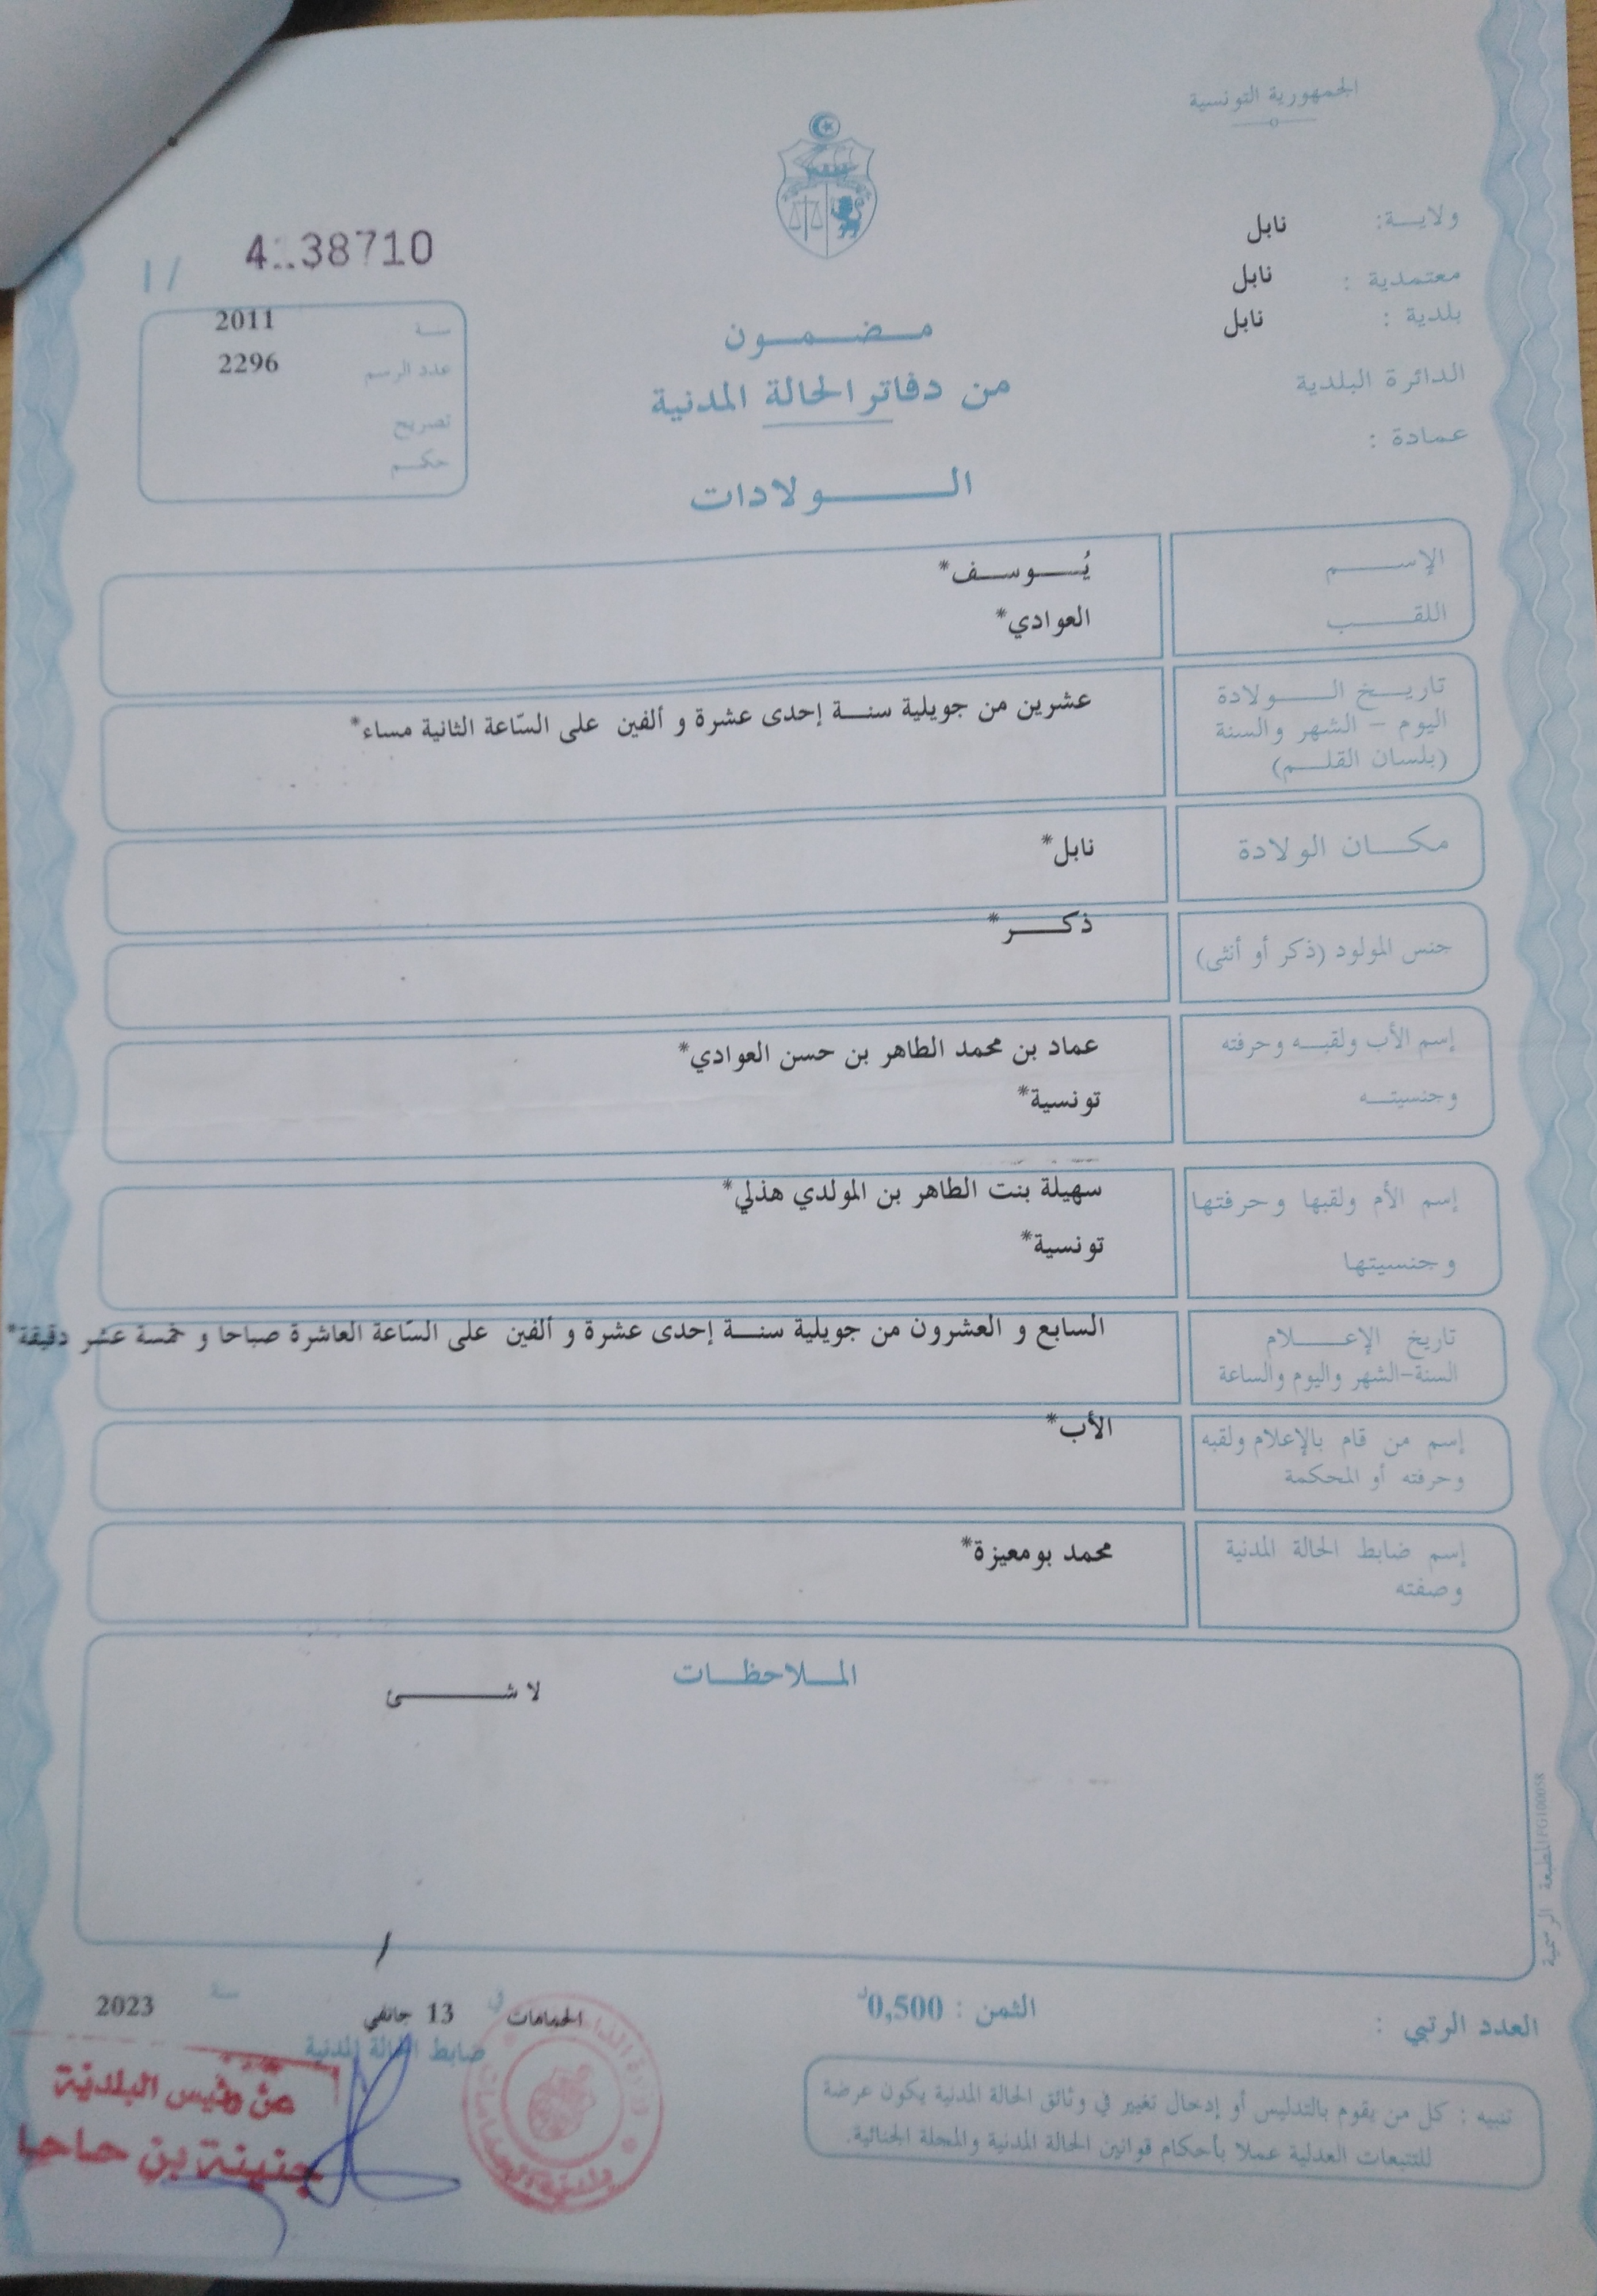 الجمهورية التونسية
ولايـــة: نابل
معتمدية : نابل
بلدية : نابل
الدائرة البلدية
عمادة :
مـضـمـون
من دفاتر الحالة المدنية
الـــولادات
سنة 2011
عدد الرسم 2296
تصريح
حكم
الإســـم يُـــوسـف*
اللقـــب العوادي*
تاريـــخ الـــولادة عشرين من جويلية سنـة إحدى عشرة و ألفين على السّاعة الثانية مساء*
اليوم – الشهر والسنة
(بلسان القلـــم)
مكـــان الولادة نابل*
جنس المولود (ذكر أو أنثى) ذكـــر*
إسم الأب ولقبـــه وحرفته عماد بن محمد الطاهر بن حسن العوادي*
وجنسيتـــه تونسية*
إسم الأم ولقبها وحرفتها سهيلة بنت الطاهر بن المولدي هذلي*
وجنسيتها تونسية*
تاريخ الإعـــلام السابع و العشرون من جويلية سنـة إحدى عشرة و ألفين على السّاعة العاشرة صباحا و خمسة عشر دقيقة*
السنة-الشهر واليوم والساعة
إسم من قام بالإعلام ولقبه الأب*
وحرفته أو المحكمة
إسم ضابط الحالة المدنية محمد بومعيزة*
وصفته
الملاحظـــات
لا شـــئ
المطبعة الرسمية
العدد الرتبي :
الثمن : 0,500د
الحمامات في 13 جانفي سنة 2023
ضابط الحالة المدنية
تنبيه : كل من يقوم بالتدليس أو إدخال تغيير في وثائق الحالة المدنية يكون عرضة
للتتبعات العدلية عملا بأحكام قوانين الحالة المدنية والمجلة الجنائية.
عن رئيس البلدية
جنينة بن حاحا